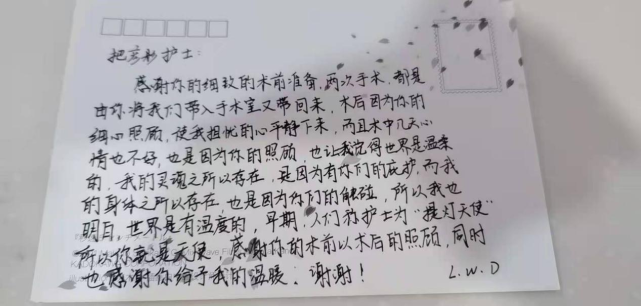 护士：
感谢你的细致的术前准备，两次手术，都是
由你将我们带入手术室又带回来，术后因为你的
细心照顾，使我担忧的心平静下来，而且术中几天心
情也不好，也是因为你的照顾，也让我觉得世界是温柔
的，我的灵魂之所以存在，是因为有你们的庇护，而我
的身体之所以存在，也是因为你们的触碰，所以我也
明白，世界是有温度的，早期，人们称护士为“提灯天使”
所以你就是天使，感谢你的术前以术后的照顾，同时
也感谢你给予我的温暖。谢谢！
L.W.D